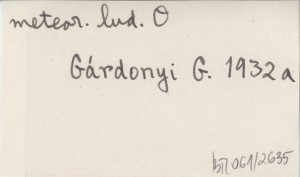 meteor. lud. O
Gárdonyi G. 1932a
bΠ 061/2635